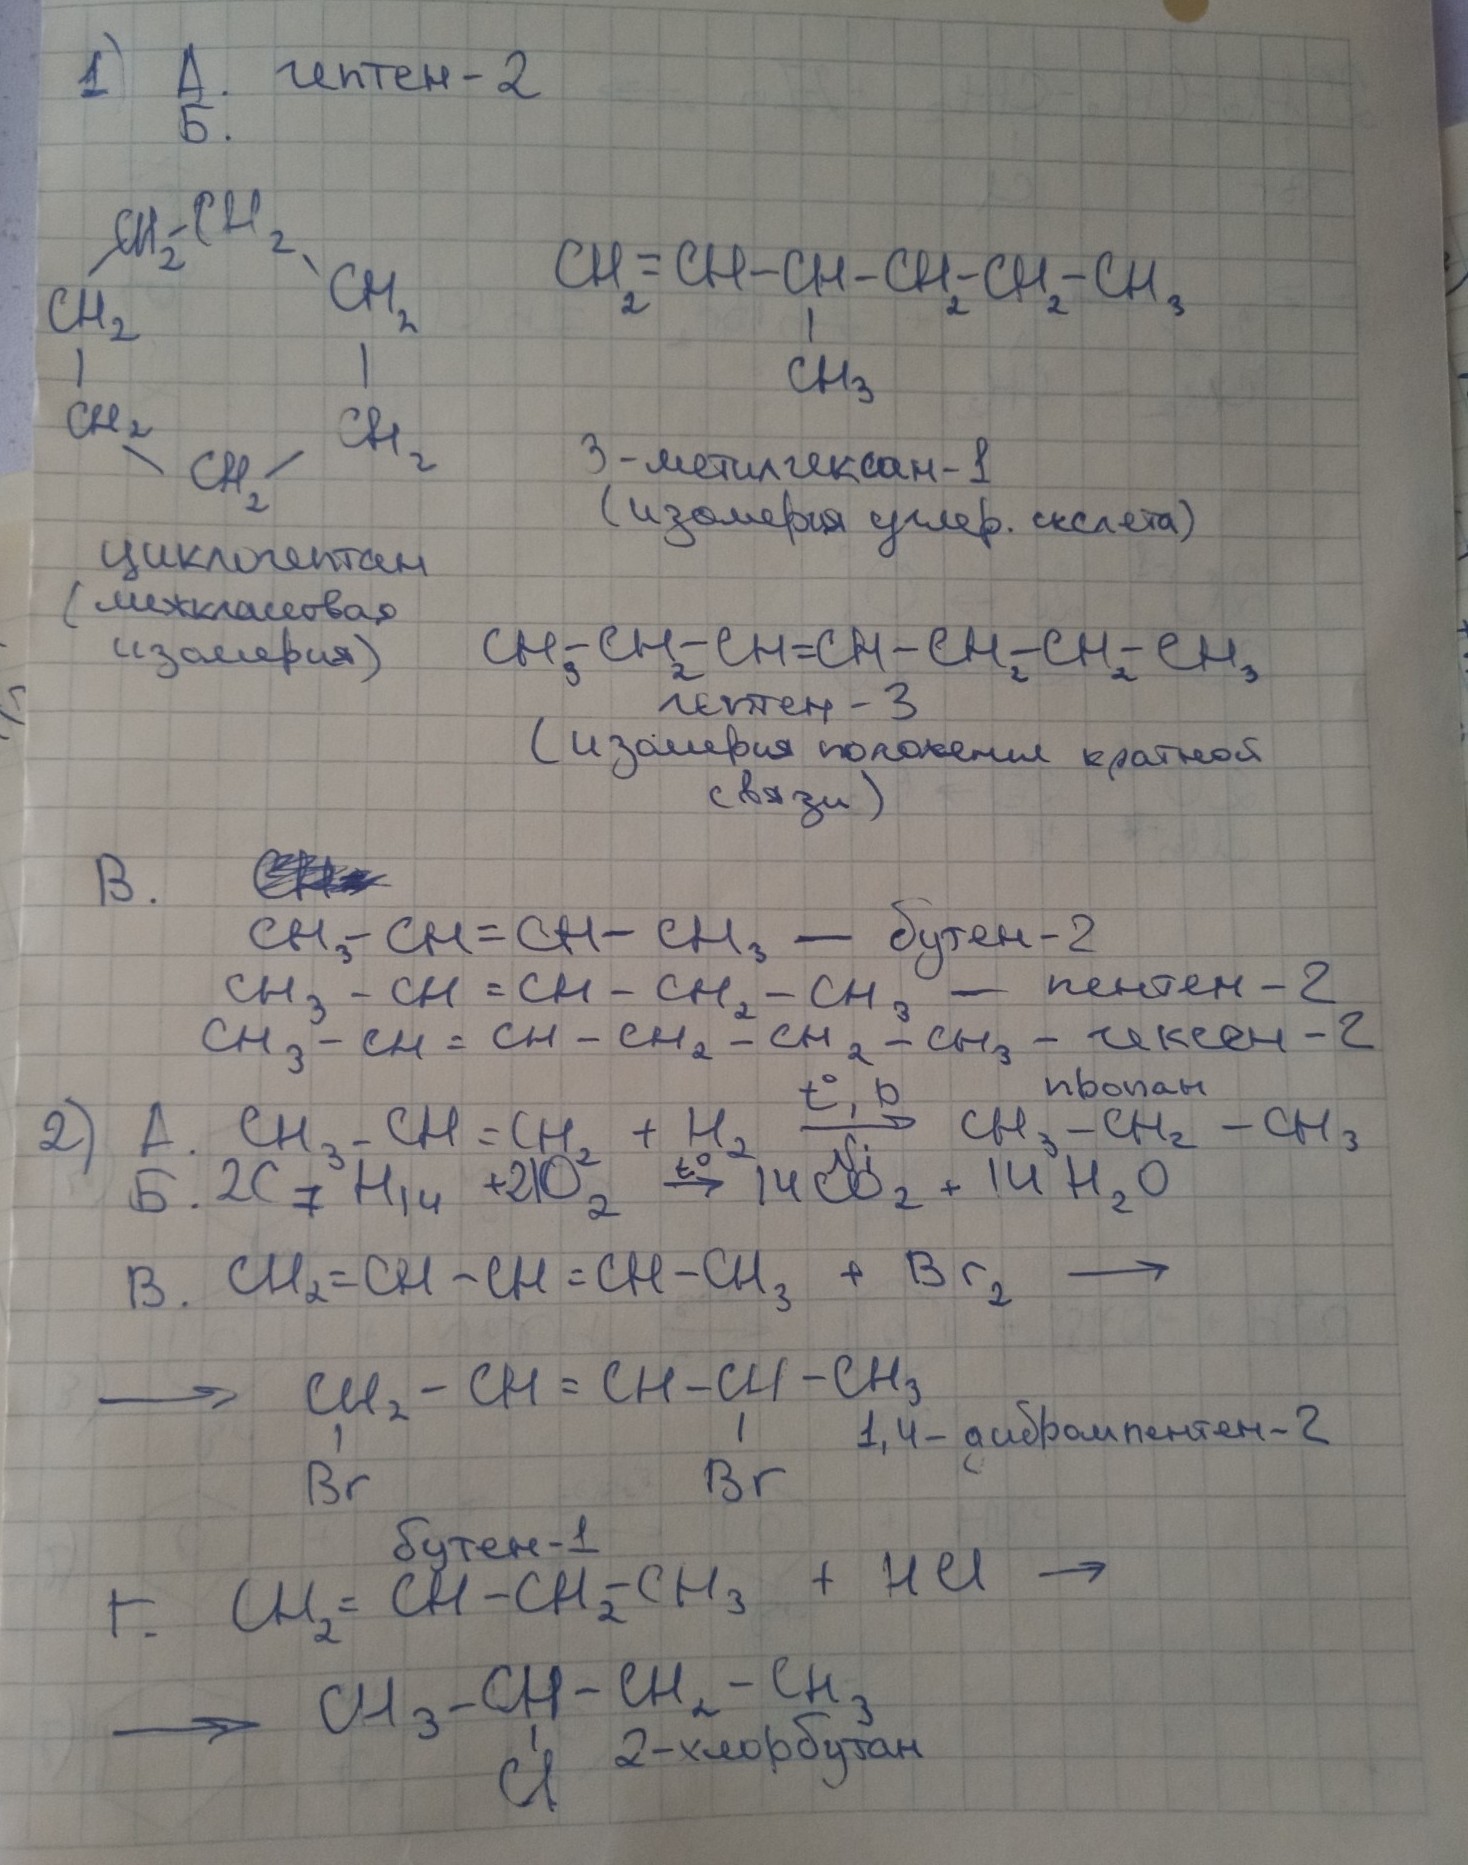 1) А. гептен-2
Б.
CH₂-CH₂
CH₂ CH₂
| |
CH₂ CH₂
\ CH₂ /
циклогептан
(межклассовая
изомерия)
CH₂=CH-CH-CH₂-CH₂-CH₃
|
CH₃
3-метилгексан-1
(изомерия углер. скелета)
CH₃-CH₂-CH=CH-CH₂-CH₂-CH₃
гептен-3
(изомерия положения кратной
связи)
В.
CH₃-CH=CH-CH₃ — бутен-2
CH₃-CH=CH-CH₂-CH₃ — пентен-2
CH₃-CH=CH-CH₂-CH₂-CH₃ - гексен-2
t°, p пропан
2) А. CH₃-CH=CH₂ + H₂ → CH₃-CH₂-CH₃
Ni
Б. 2C₇H₁₄ + 21O₂ t°→ 14CO₂ + 14H₂O
В. CH₂=CH-CH=CH-CH₃ + Br₂ →
→ CH₂-CH=CH-CH-CH₃
| |
Br Br 1,4-дибромпентен-2
бутен-1
Г. CH₂=CH-CH₂-CH₃ + HCl →
→ CH₃-CH-CH₂-CH₃
|
Cl 2-хлорбутан